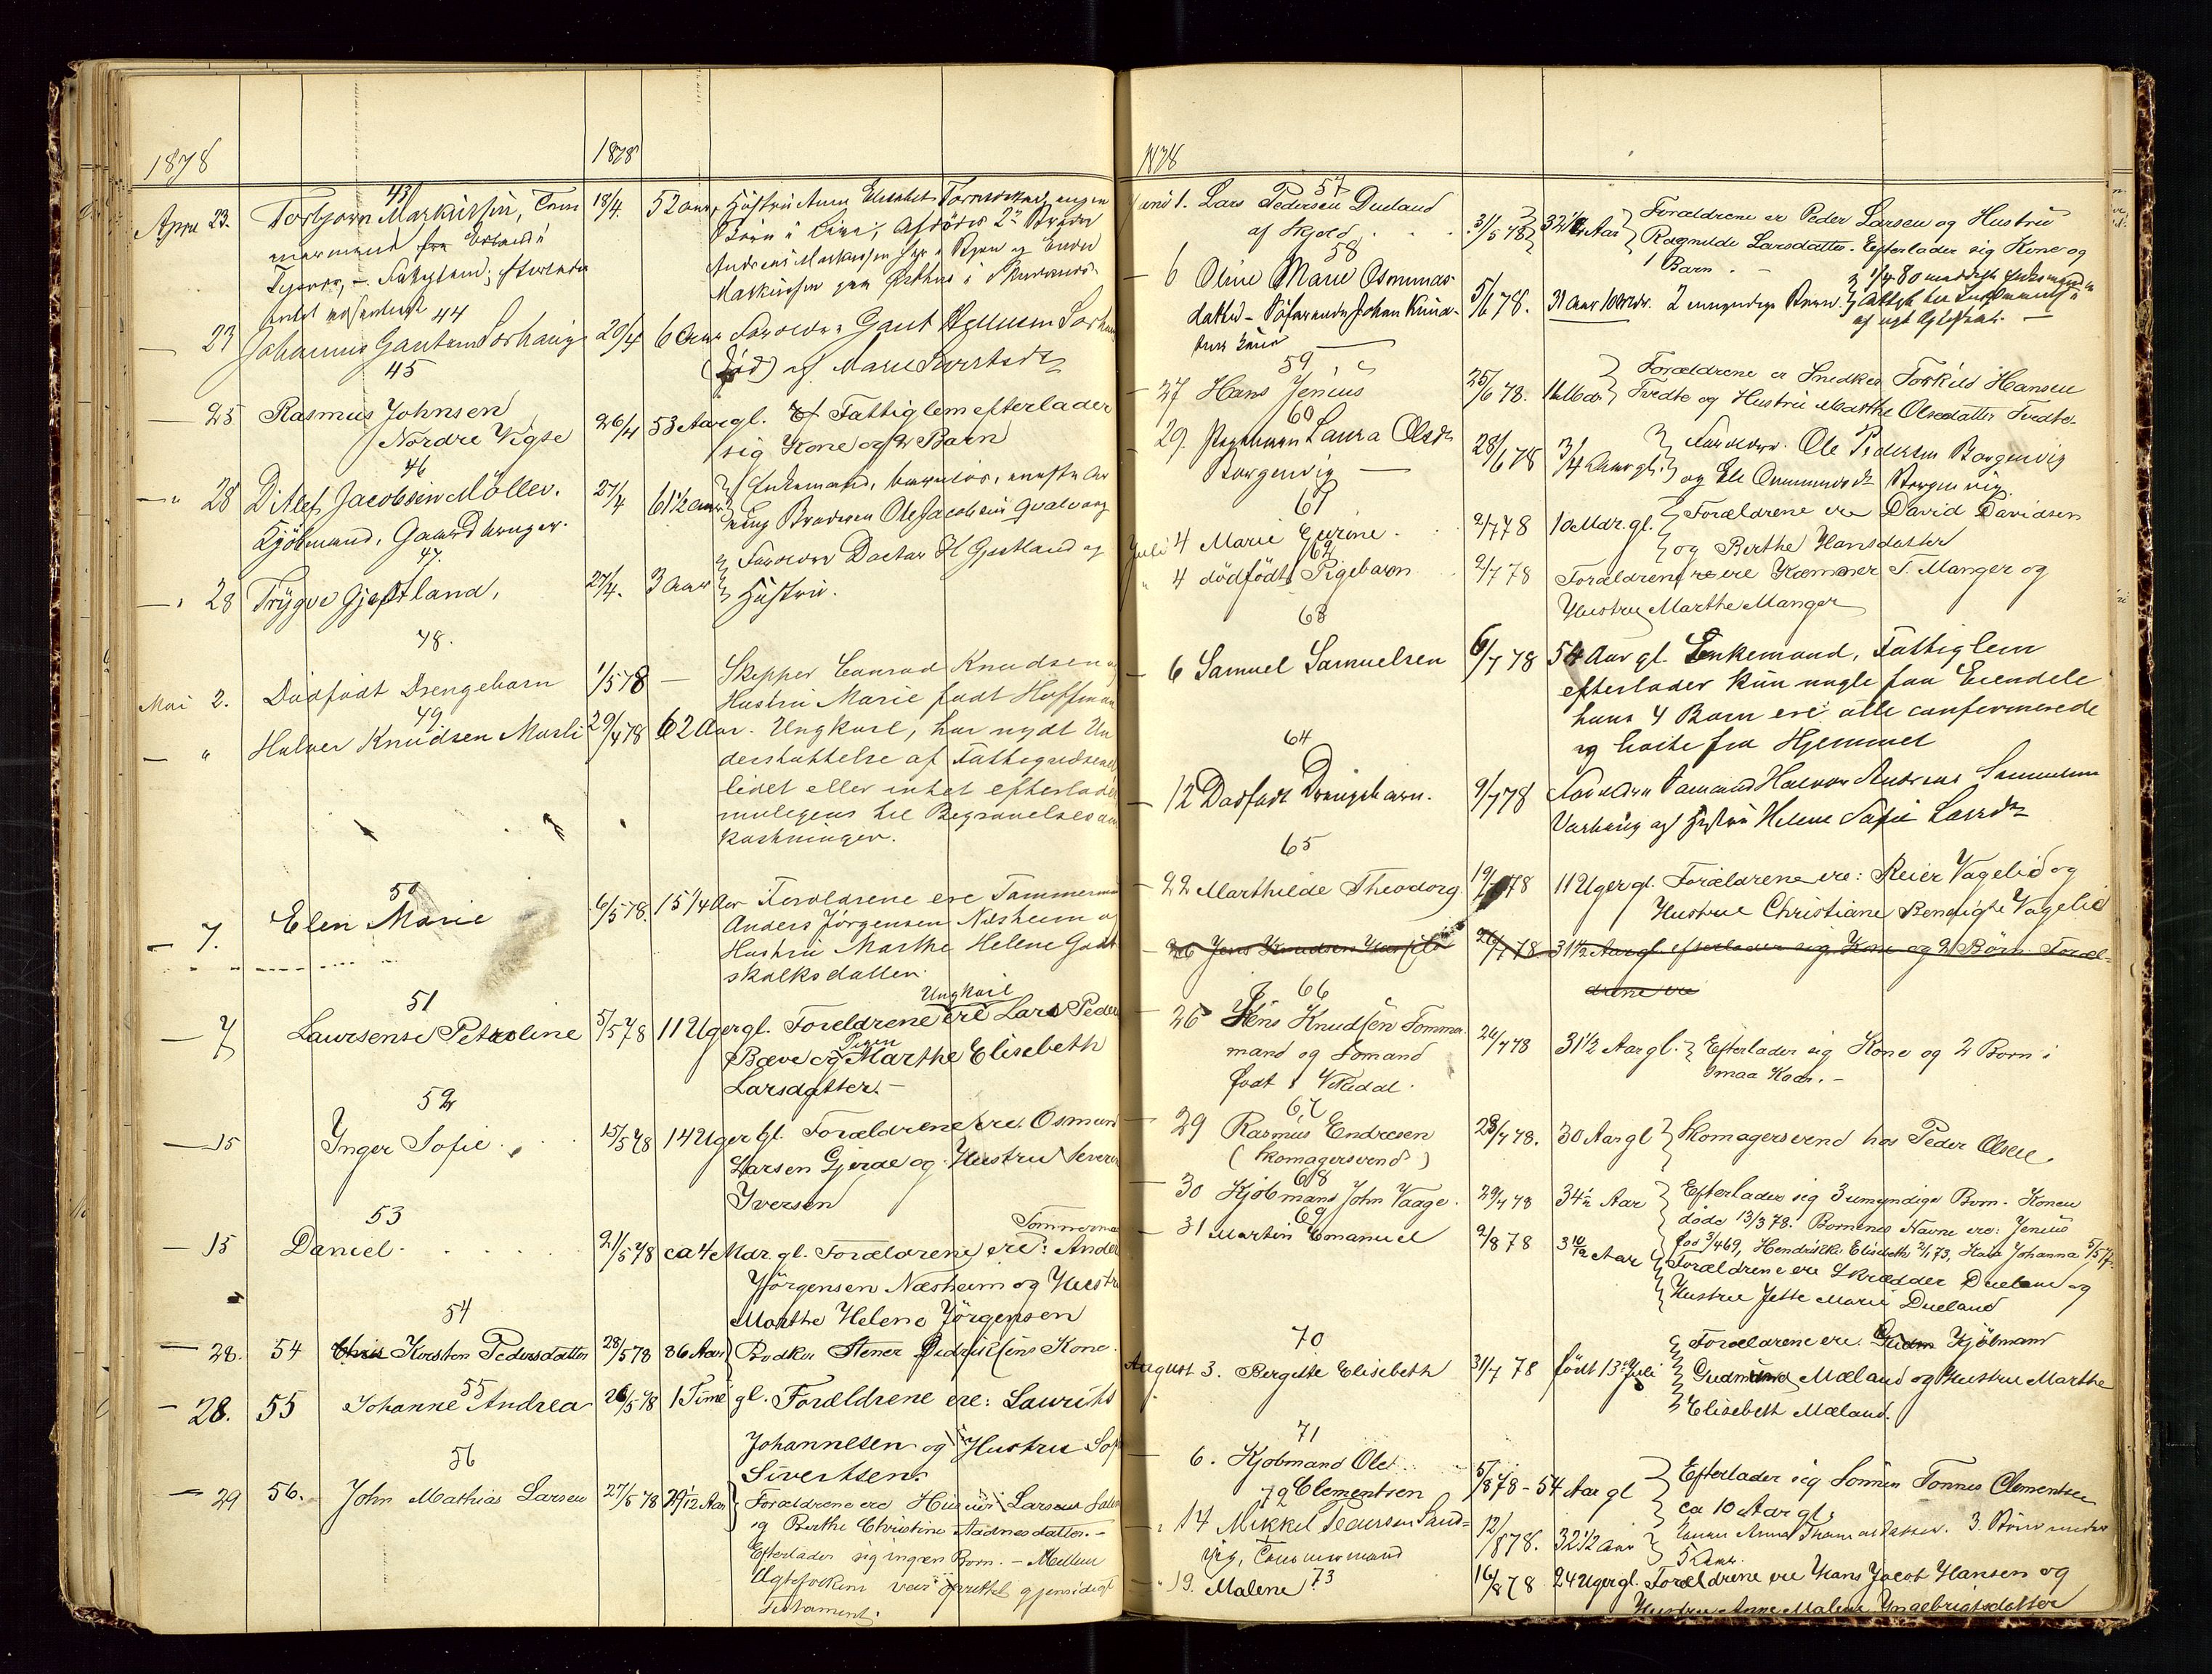 1878
1878
43
April 23. Torbjørn Markussen, Tøm
18/4. 52 Aar, Hustru Anna Elisabet
mermand
Børn i Live, Afdødes 2de Brødre
Andreas Markussen
Markussen
44
23 Johannes Gautesen Sørhaug 20/4 6 Aar Forældre Gaut
(død) og Marie
45
25 Rasmus Johnsen 26/4 53 Aar gl. Et Fattiglem efterlader
Nordre Vigse sig Kone og 2 Børn
46
28 Ditlef Jacobsen Møller. 27/4 61 1/2 Aar Enkemand, barnløs, eneste Ar
Kjøbmand, Gaardbruger. ving Broderen Ole Jacobsen Qvalevaag
47.
28 Trygve Gjestland, 27/4. 3 Aar Forældre Doctor H Gjestland og
Hustru.
48.
Mai 2. Dødfødt Drengebarn 1/5 78 — Skipper Conrad Knudsen og
Hustru Marie født Hoffman
49
— " Halvor Knudsen Musli 29/4 78 62 Aar. Ungkarl, har nydt Un
derstøttelse af Fattigvæsenet
lidet eller intet efterlader
muligens til Begravelsesom
kostninger.
50
— 7. Elen Marie 6/5 78. 15 1/4 Aar Forældrene ere Tømmerm
Anders Jørgensen Nesheim og
Hustru Marthe Helene Godt
skalksdatter.
51
Ungkarl
— 7 Laursense Petroline 5/5 78 11 Uger gl. Forældrene ere Lars Peder
Pigen
Bæve og Marthe Elisebeth
Larsdatter.—
52
— 15 Inger Sofie. 15/5 78 14 Uger gl. Forældrene ere. Osmund
Larsen Gjerde og Hustru Severi
Iversen
53
Tømmerma
— 15 Daniel. 21/5 78 ca 4 Mdr. gl. Forældrene ere: Ander
Jørgensen Næsheim og Hustr
Marthe Helene Jørgensen
54
— 28. 54 Chris Kersten Pedersdatter 28/5 78 86 Aar Bødker Stener Didriksens Kone.
55
— 28. 55 Johanne Andrea 26/5 78 1 Time gl. Forældrene ere: Laurits
Johannesen og Hustru Sop
Sivertsen.
56
— 29 56. John Mathias Larsen 27/5 78 Forældrene ere Larsen
og Berthe Christine Aadnesdatter.—
Efterlader sig ingen Børn. — Mellem
Ægtefolkene var oprettet gjensidigt
Testament.
1878
57
Juni 1. Lars Pedersen Dueland
af Skjold 31/5 78 Forældrene er Peder Larsen og Hustru
Ragnilde Larsdatter. Efterlader sig Kone og
1 Barn.
58
— 6 Oline Marie Osmunds
datter — Søfarende Johan Knud- 5/6 78. 31 Aar 10 Mdr. 2 umyndige Børn.
sens Kone
59
— 27 Hans Jenius 25/6 78. Forældrene er Snedker Torkild Hansen
Tvedte og Hustru Marthe Olsdatter Tvedte.
60
29. Laura Olsdr 28/6 78 3/4 Aar gl. Forældre. Ole Pedersen Borgenvig
Borgenvig — og Eli Osmundsdr Borgenvig.
61
Juli 4 Marie Gurine. 2/7 78 10 Mdr. gl. Forældrene ere David Davidsen
og Berthe Hansdatter
62
" 4 dødfødt Pigebarn 2/7 78 Forældrene ere Kæmner T. Manger og
Hustru Marthe Manger
63
— 6 Samuel Samuelsen 6/7 78 54 Aar gl. Enkemand, Fattiglem
efterlader kun nogle faa Eiendele
hans 4 Børn ere alle confermerede
og borte fra Hjemmet
64
— 12 Dødfødt Drengebarn. 9/7 78 Forældre Sømand Halvor Andreas Samuelsen
Varhaug og Hustru Helene Sofie Larsdr
65
— 22 Marthilde Theodora 19/7 78 11 Uger gl. Forældrene ere: Reier Vagelid og
Hustru Christiane Bendigte Vagelid
26 Jens Knudsen 26/7 78 31 1/2 Aar gl. efterlader sig Kone og 2 Børn Foræl-
drene ere
66
26 Jens Knudsen Tømmer
mand og Sømand 26/7 78 31 1/2 Aar gl. Efterlader sig Kone og 2 Børn i
født i Vikedal. smaa Kaar.—
67
29 Rasmus Endresen 28/7 78. 30 Aar gl Skomagersvend hos Peder Olsen.
(Skomagersvend)
68
30 Kjøbmand John Vaage. 29/7 78 34 1/2 Aar Efterlader sig 3 umyndige Børn. Konen
døde 13/3 78. Børnenes Navne ere: Jenius
fød 3/4 69, Hendrikke Elisabeth 2/1 73, Johanna
69
— 31 Martin Emanuel 2/8 78 3 10/12 Aar Forældrene ere Skrædder Dueland og
Hustru Jette Marie Dueland
70
August 3. Bergitte Elisebeth 31/7 78 født 13de Juli Forældrene ere. Kjøbmand
Gudmund Mæland og Hustru Marthe
Elisebeth Mæland.
71
— 6. Kjøbmand Ole
Clementsen 5/8 78 — 54 Aar gl Efterlader sig Sønnen Tønnes Clementsen
ca 10 Aar gl.
72
— 14 Mikkel Pedersen Sand-
vig, Tømmermand 12/8 78. 32 1/2 Aar Enken Anna Thomasdatter. 3 Børn under
5 Aar.
73
" 19. Malene 16/8 78 24 Uger gl. Forældrene ere Hans Jacob Hansen og
Hustru Anne Malene Ingebrigtsdatter